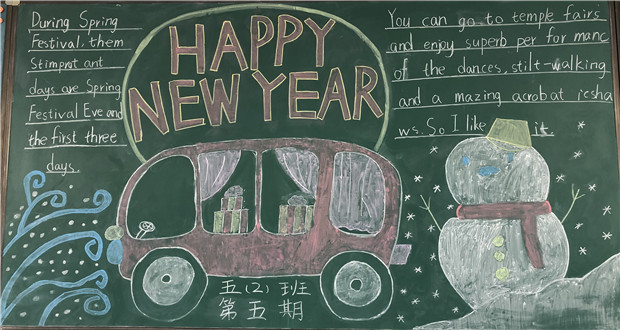 During Spring
Festival, them
Stimprot ant
days are Spring
Festival Eve and
the first three
days.
HAPPY
NEW YEAR
You can go to temple fairs
and enjoy superb per for manc
of the dances, stilt-walking
and a mazing acrobat icsha
ws. So I like it.
五(2)班
第五期